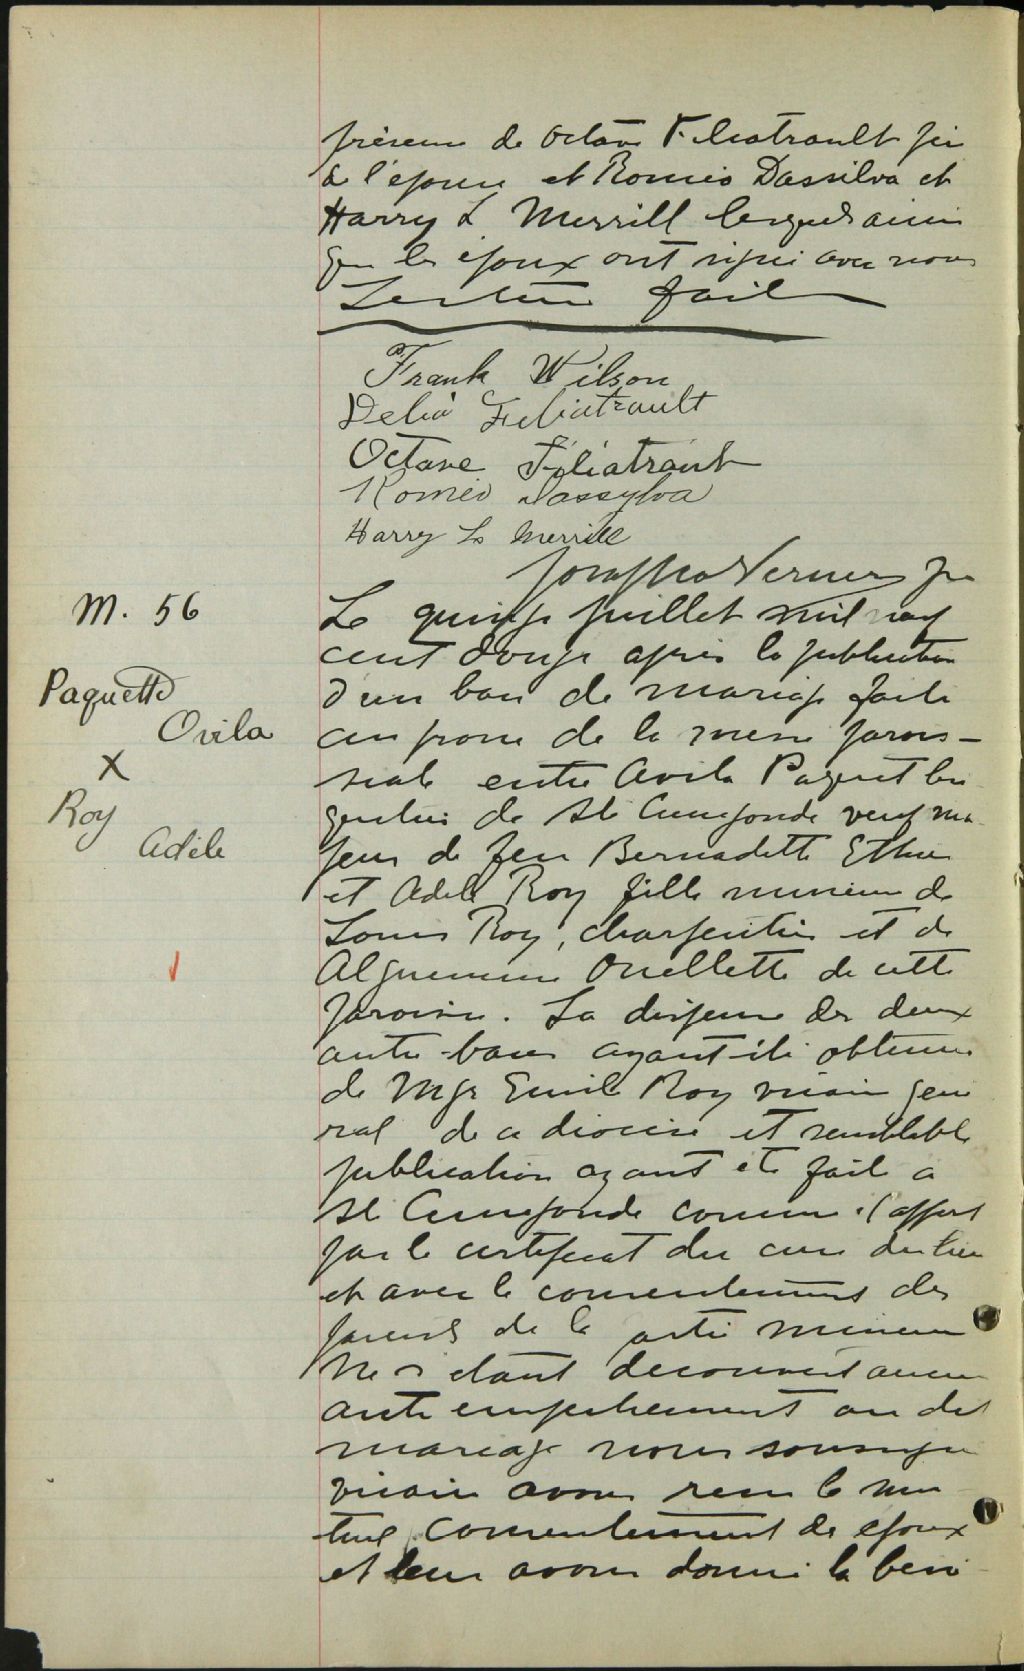 présence de Octave Filiatrault père
de l'épouse et Romeo Dassilva et
Harry L Merrill lesquels ainsi
que les époux ont signé avec nous
Lecture faite
Frank Wilson
Delia Filiatrault
Octave Filiatrault
Roméo Dassylva
Harry L. Merrill
Verner ptre
M. 56
Paquette
Ovila
X
Roy
Adèle
Le quinze juillet mil neuf
cent douze après la publication
d'un ban de mariage faite
au prone de la messe parois-
siale entre Avila Paquet
de Ste Cunegonde veuf ma-
jeur de feu Bernadette Ethier
et Adele Roy fille mineure de
Louis Roy, charpentier et de
Ouellette de cette
paroisse. La dispense des deux
autres bans ayant été obtenue
de Mgr Emile Roy vicaire géné
ral de ce diocèse et semblable
publication ayant été faite a
Ste Cunegonde comme il appert
par le certificat du curé du lieu
et avec le consentement des
parents de la partie mineure
Ne s'étant découvert aucun
autre empêchement au dit
mariage nous soussigné
vicaire avons reçu le mu
tuel consentement des époux
et leur avons donné la béné